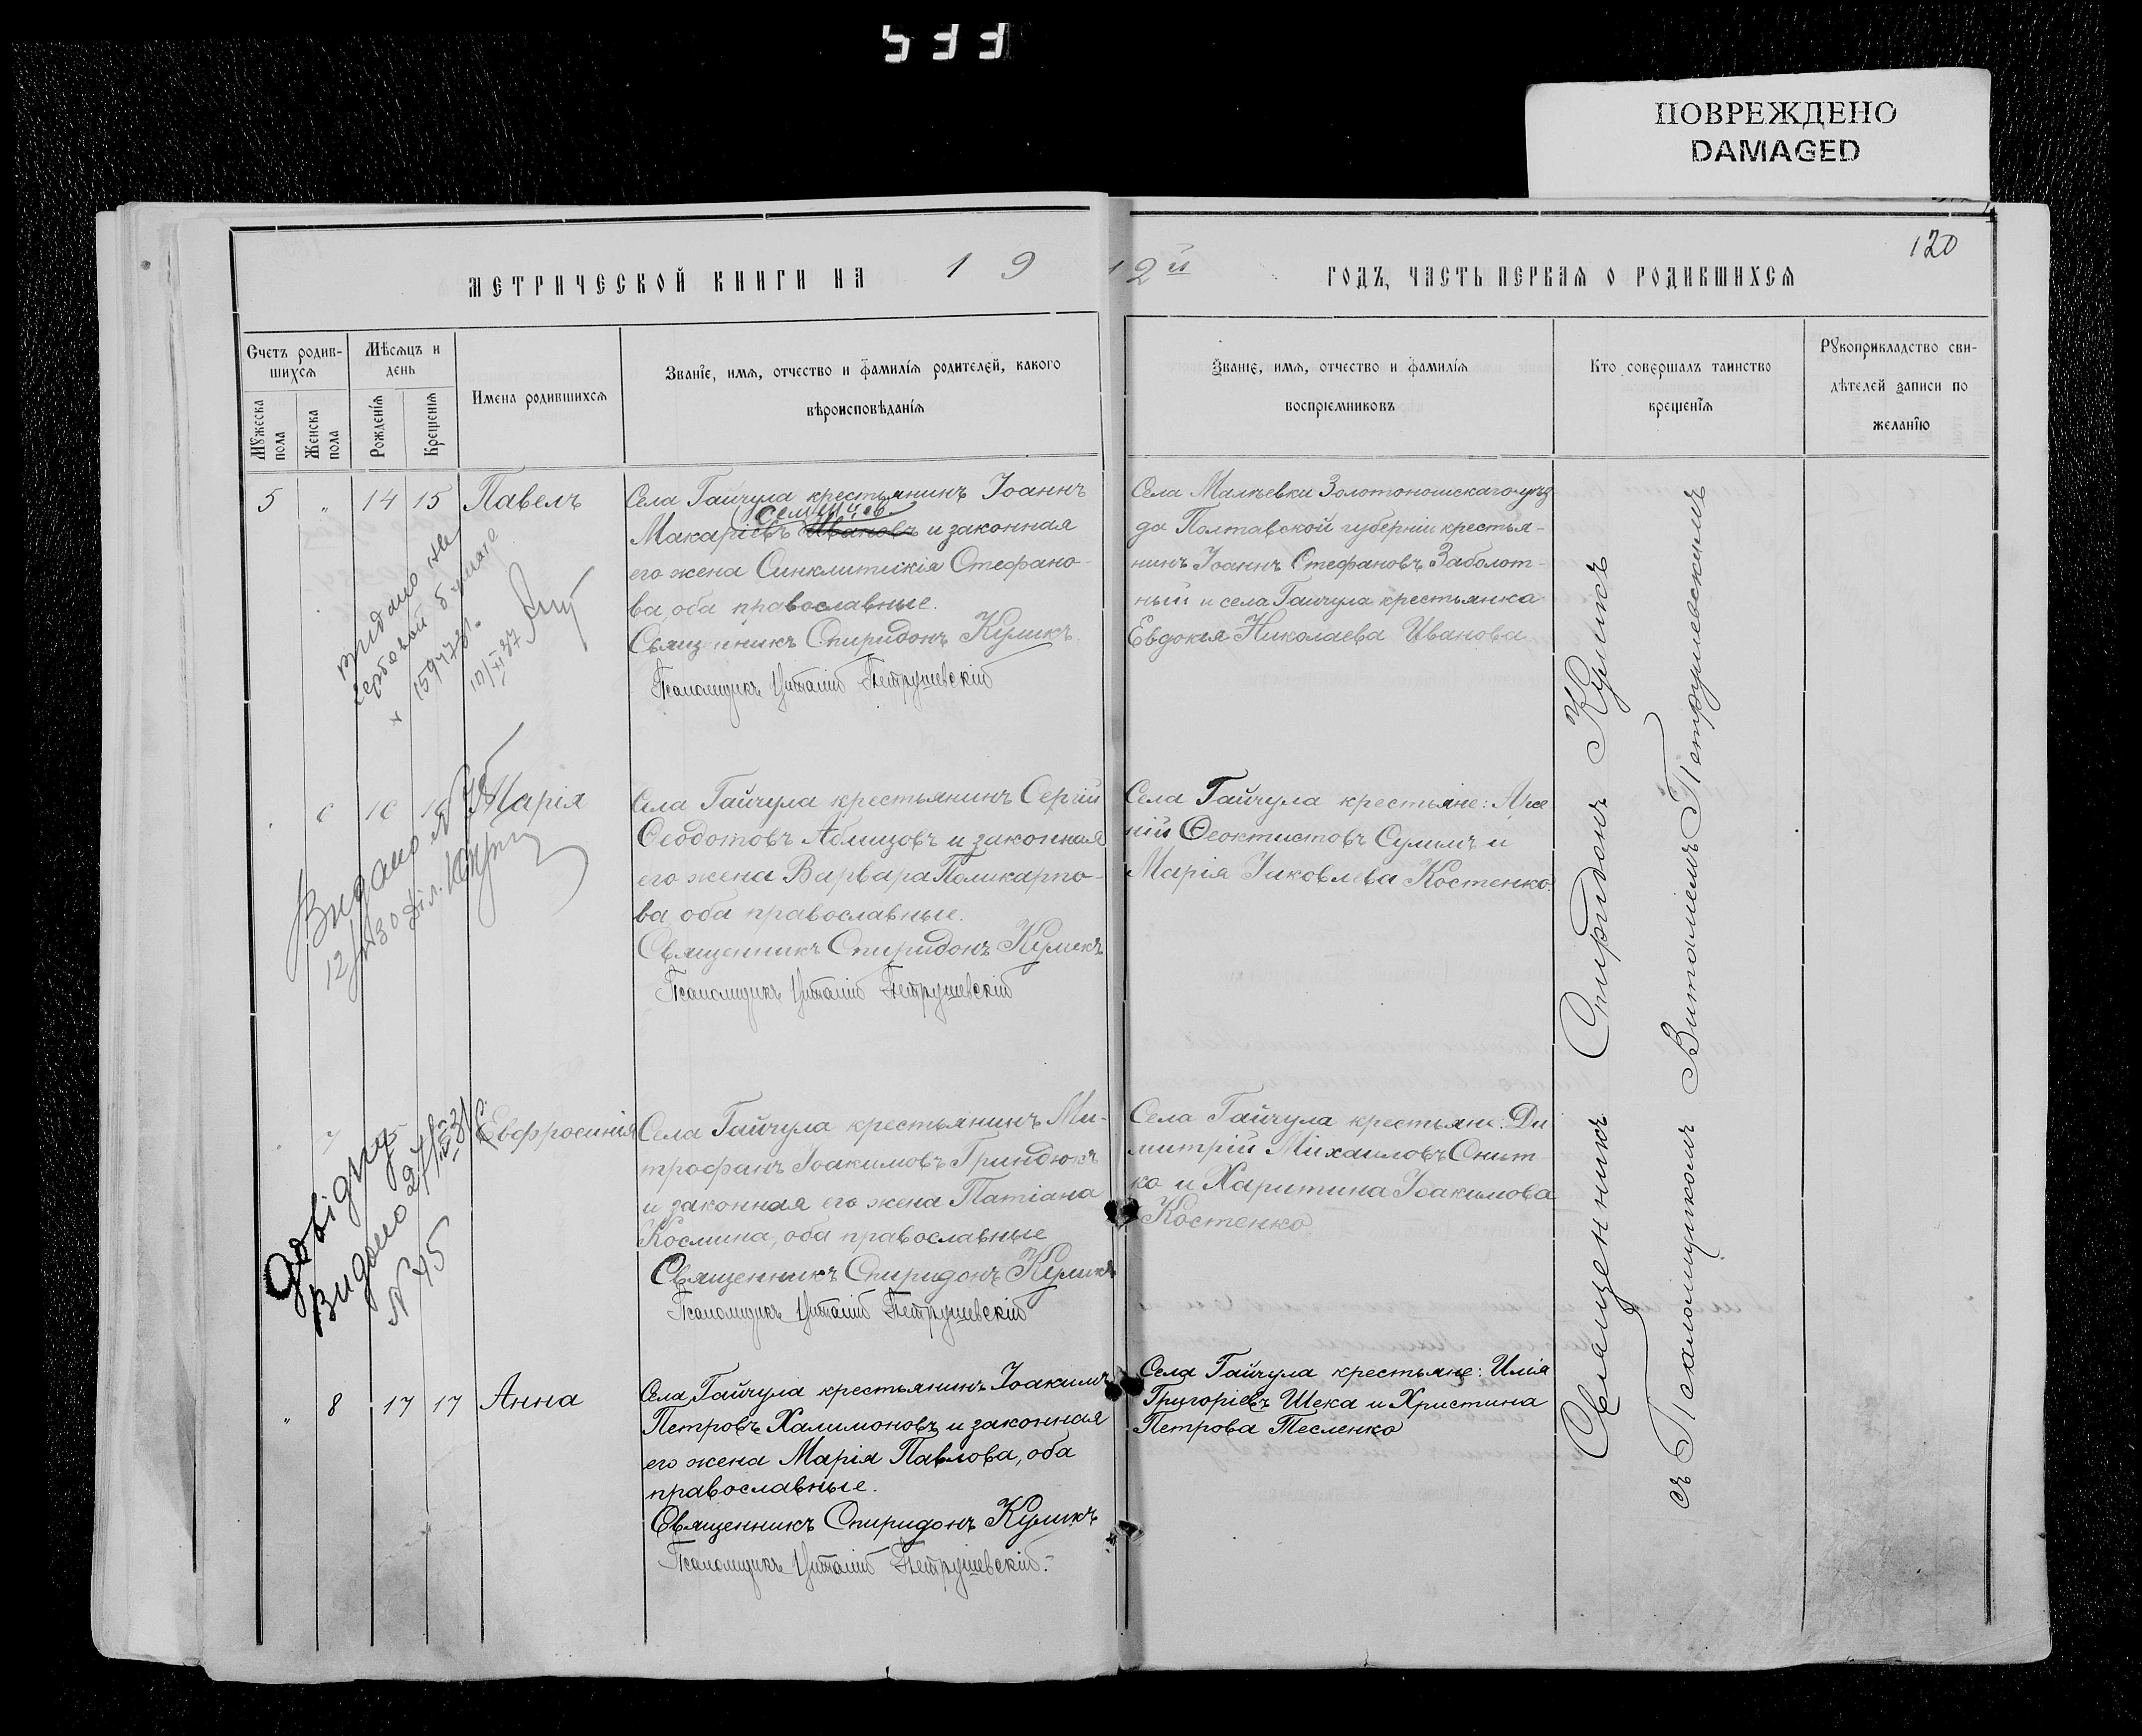 533
ПОВРЕЖДЕНО
DAMAGED
120
МЕТРИЧЕСКОЙ КНИГИ НА 1912й ГОДЪ, ЧАСТЬ ПЕРВАЯ О РОДИВШИХСЯ
Счетъ родив-
шихся
Мужеска пола
Женска пола
Мѣсяцъ и
день
Рожденія
Крещенія
Имена родившихся
Званіе, имя, отчество и фамилія родителей, какого
вѣроисповѣданія
Званіе, имя, отчество и фамилія
воспріемниковъ
Кто совершалъ таинство
крещенія
Рукоприкладство сви-
дѣтелей записи по
желанію
5 " 14 15 Павелъ
Села Гайчула крестьянинъ Іоаннъ
Макаріевъ Ивановъ и законная
его жена Синклитикія Стефано-
ва, оба православные.
Священникъ Спиридонъ Куликъ
Псаломщикъ Виталій Петрушевскій
Села Малѣевки Золотоношскаго уѣз
да Полтавской губерніи крестья-
нинъ Іоаннъ Стефановъ Заболот-
ный и села Гайчула крестьянка
Евдокія Николаева Иванова
Видано на
гербовой бумаге
Марія
Села Гайчула крестьянинъ Сергій
Ѳеодотовъ и законная
его жена Варвара Поликарпо-
ва оба православные.
Священникъ Спиридонъ Куликъ
Псаломщикъ Виталій Петрушевскій
Села Гайчула крестьяне: Арсе
ній Ѳеоктистовъ и
Марія Іаковлева Костенко
Видано №
7 Евфросинія
Села Гайчула крестьянинъ Ми-
трофанъ Іоакимовъ Гриндюкъ
и законная его жена Татіана
Космина, оба православные
Священникъ Спиридонъ Куликъ
Псаломщикъ Виталій Петрушевскій
Села Гайчула крестьяне: Ди
митрій Михаиловъ Снит
ко и Харитина Іоакимова
Костенко
Довідку
Видано
N 45
" 8 17 17 Анна
Села Гайчула крестьянинъ Іоакимъ
Петровъ Халимоновъ и законная
его жена Марія Павлова, оба
православные.
Священникъ Спиридонъ Куликъ
Псаломщикъ Виталій Петрушевскій.
Села Гайчула крестьяне: Илія
Григоріевъ Шека и Христина
Петрова Тесленко
Священникъ Спиридонъ Куликъ
съ Псаломщикомъ Виталіемъ Петрушевскимъ